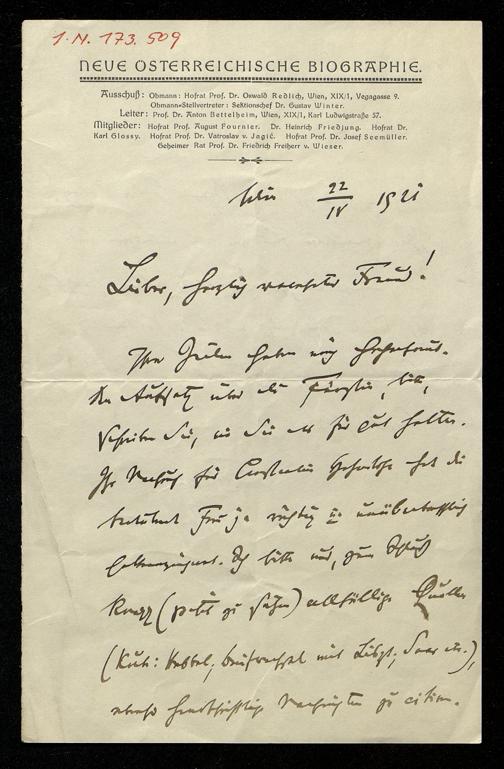 I.N. 173.509
NEUE ÖSTERREICHISCHE BIOGRAPHIE.
Ausschuß: Obmann: Hofrat Prof. Dr. Oswald Redlich, Wien, XIX/1, Vegagasse 9.
Obmann-Stellvertreter: Sektionschef Dr. Gustav Winter.
Leiter: Prof. Dr. Anton Bettelheim, Wien, XIX/1, Karl Ludwigstraße 57.
Mitglieder: Hofrat Prof. August Fournier. Dr. Heinrich Friedjung. Hofrat Dr.
Karl Glossy. Hofrat Prof. Dr. Vatroslav v. Jagić. Hofrat Prof. Dr. Josef Seemüller.
Geheimer Rat Prof. Dr. Friedrich Freiherr v. Wieser.
Wien 22/IV 1921
Lieber, herzlich verehrter Freund!
Ihre Zeilen haben mich
Den Aufsatz über die Fürstin, bitte,
schreiben Sie, wie Sie es für gut halten.
Ihr Nachruf für hat die
Frau ja richtig u.
Ich bitte nur, zum Schluß
(petit zu) allfällige Quellen
(Kuh: Hebbel; Briefwechsel mit Liszt; Saar etc.),
ebenso handschriftliche zu citieren.